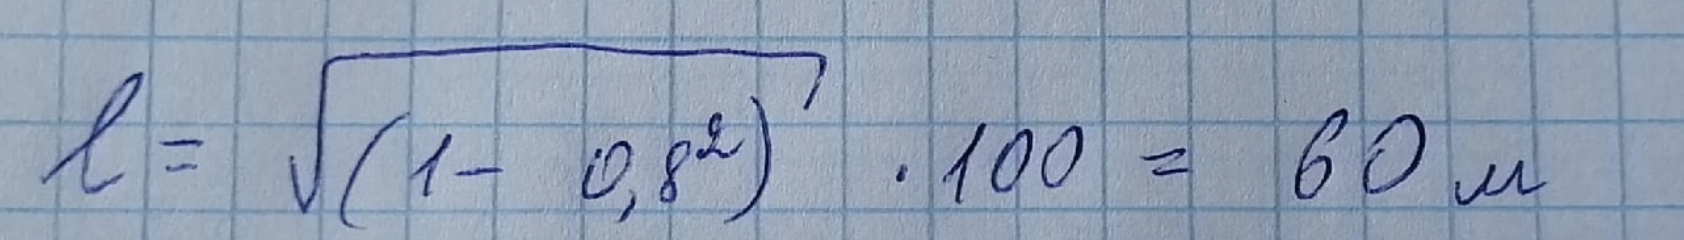 l = √(1 - 0,8²) · 100 = 60 м